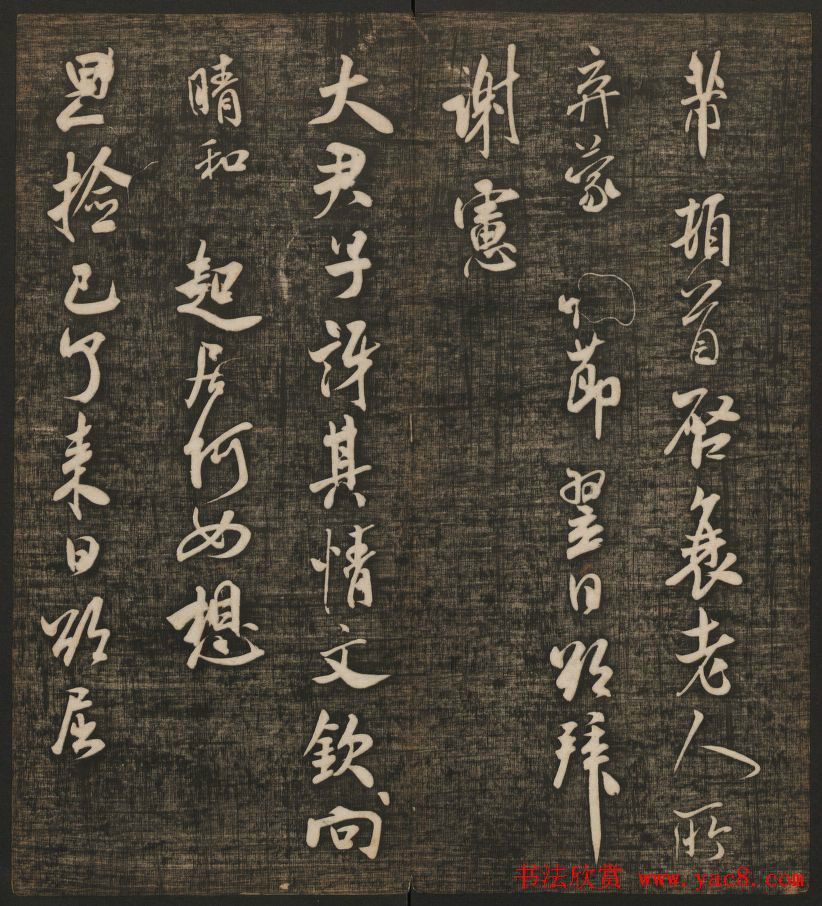 芾頓首啓衰老人所
弃蒙 節翌日欲拜
謝憲
大君子訝其情文欽向
晴和 起居何如想
恩捡已了来日欲屈
书法欣赏 www.yac8.com